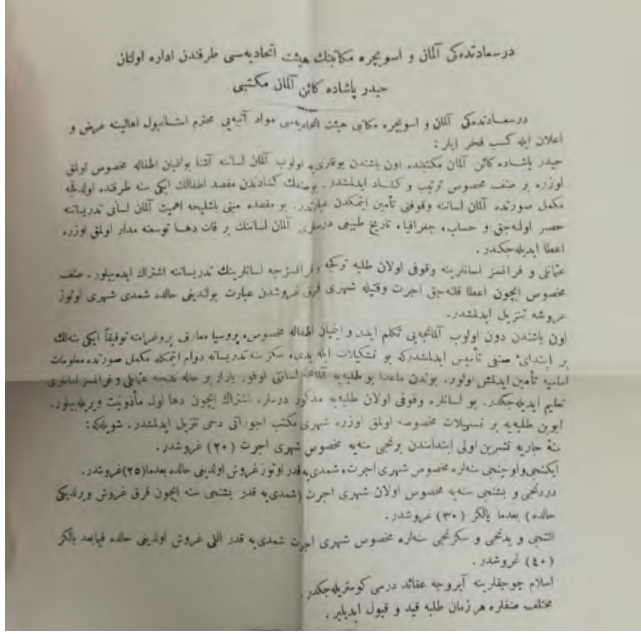 درسعادتده‌كی آلمان و اسویچره مكاتبنك هیئت اتحادیه‌سی طرفندن اداره اولنان
حیدر پاشاده كائن آلمان مكتبی
درسعادتده‌كی آلمان و اسویچره مكاتبی هیئت اتحادیه‌سی مواد آتیه‌یی محترم استانبول اهالیسنه عرض و
اعلان ایله كسب فخر ایلر :
حیدر پاشاده كائن آلمان مكتبنده اون یاشندن یوقاری‌یه اولوب آلمان لساننه آشنا بولنمیان اطفاله مخصوص اولمق
اوزره بر صنف مخصوص ترتیب و كشاد ایدلمشدر . بو صنفك كشادندن مقصد اطفالك ایكی سنه ظرفنده اولدقجه
مكمل صورتده آلمان لساننه وقوفنی تأمین ایتمكدن عبارتدر. بو مقصده مبنی باشلیجه اهمیت آلمان لسانی تدریساتنه
حصر اولنه‌جق و حساب، جغرافیا، تاریخ طبیعی درسلری آلمان لساننك بر قات دها توسعنه مدار اولمق اوزره
اعطا ایدیله‌جكدر .
عثمانلی و فرانسز لسانلرینه وقوفی اولان طلبه تركجه و فرانسزجه لسانلرینك تدریساتنه اشتراك ایده‌بیلور. صنف
مخصوص ایچون اعطا قلنه‌جق اجرت وقتیله شهری قرق غروشدن عبارت بولندیغی حالده شمدی شهری اوتوز
غروشه تنزیل ایدلمشدر.
اون یاشندن دون اولوب آلمانجه‌یی تكلم ایدن و ایتمیان اطفاله مخصوص، پروسیا معارف پروغرامنه توفیقاً ایكی سنه‌لك
بر ابتدائی صنفی تأسیس ایدلمشدركه بو تشكیلات ایله یدی، سكز سنه تدریساته دوام ایتمكله مكمل صورتده معلومات
اساسیه تأمین ایدلمش اولور. بوندن ماعدا بو طلبه‌یه آلمانجه لسانی اوقور یازار بر حاله كلنجه عثمانلی و فرانسز لسانلری
تعلیم ایدیله‌جكدر. بو لسانلره وقوفی اولان طلبه‌یه مذكور درسلره اشتراك ایچون دها اول مأذونیت ویریله‌بیلور.
ابوین طلبه‌یه بر تسهیلات مخصوصه اولمق اوزره شهری مكتب اجوراتی دخی تنزیل ایدلمشدر. شویله‌كه:
سنهٔ جاریه تشرین اولی ابتداسندن برنجی سنه‌یه مخصوص شهری اجرت (۲۰) غروشدر.
ایكنجی و اوچنجی سنه‌لره مخصوص شهری اجرت، شمدی‌یه قدر اوتوز غروش اولدیغی حالده بعدما (۲٥) غروشدر.
دردنجی و بشنجی سنه‌یه مخصوص اولان شهری اجرت (شمدی‌یه قدر بشنجی سنه ایچون قرق غروش ویرلدیكی
حالده) بعدما یالكز (۳۰) غروشدر.
التنجی و یدنجی و سكزنجی سنه‌لره مخصوص شهری اجرت شمدی‌یه قدر اللی غروش اولدیغی حالده فیمابعد یالكز
(٤۰) غروشدر.
اسلام چوجقلرینه آیروجه عقائد درسی كوستریله‌جكدر.
مختلف صنفلره هر زمان طلبه قید و قبول ایدیلیر.